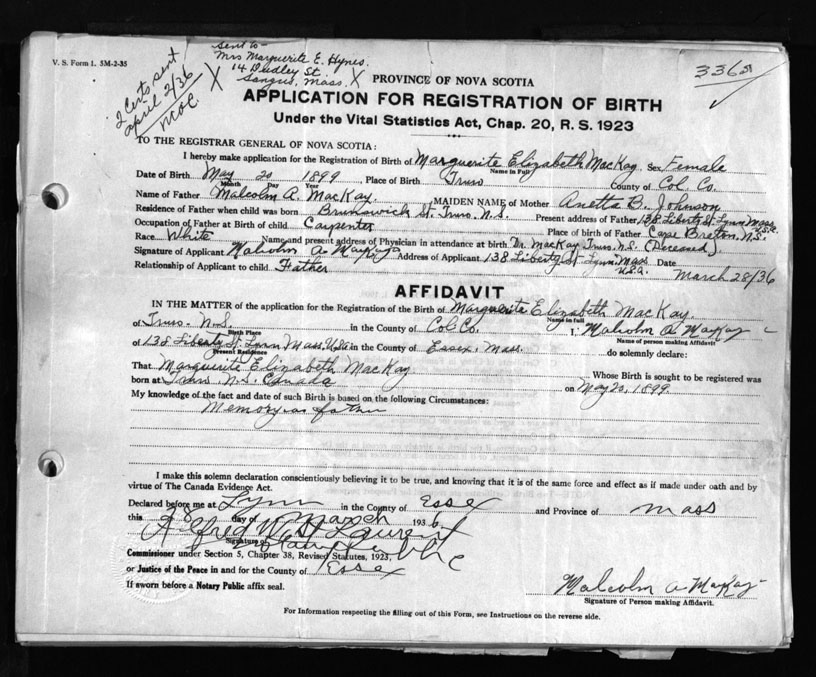 V. S. Form 1. 5M-2-35
2 Certs. sent
april 2/36
MOC.
X
Sent to
Mrs Marguerite E. Hynes.
14 Dudley St.
Saugus, Mass. X
PROVINCE OF NOVA SCOTIA
336
APPLICATION FOR REGISTRATION OF BIRTH
Under the Vital Statistics Act, Chap. 20, R. S. 1923
TO THE REGISTRAR GENERAL OF NOVA SCOTIA:
I hereby make application for the Registration of Birth of Marguerite Elizabeth MacKay. Sex Female
Name in Full
Date of Birth May 20 1899, Place of Birth Truro County of Col. Co.
Month Day Year
Name of Father Malcolm A. MacKay. MAIDEN NAME of Mother Anetta B. Johnson
Residence of Father when child was born Brunswick St. Truro, N.S. Present address of Father 138 Liberty St Lynn Mass U.S.A.
Occupation of Father at Birth of Child Carpenter Place of birth of Father Cape Breton, N.S.
Race White Name and present address of Physician in attendance at birth Dr. MacKay Truro, N.S. (Deceased)
Signature of Applicant Malcolm A MacKay Address of Applicant 138 Liberty St Lynn. Mass U.S.A. Date March 28/36
Relationship of Applicant to child Father
AFFIDAVIT
IN THE MATTER of the application for the Registration of the Birth of Marguerite Elizabeth MacKay.
Name in full
of Truro N.S. in the County of Col. Co. I, Malcolm A. MacKay
Birth Place Name of Person making Affidavit
of 138 Liberty St Lynn Mass, U.S.A. in the County of Essex, Mass. do solemnly declare:
Present Residence
That Marguerite Elizabeth MacKay. Whose Birth is sought to be registered was
born at Truro N.S. Canada on May 20, 1899
My knowledge of the fact and date of such Birth is based on the following Circumstances:
Memory as father
I make this solemn declaration conscientiously believing it to be true, and knowing that it is of the same force and effect as if made under oath and by
virtue of The Canada Evidence Act.
Declared before me at Lynn in the County of Essex and Province of Mass
this 28 day of March 1936
Alfred W. St Laurent
Signature of
Notary Public
Commissioner under Section 5, Chapter 38, Revised Statutes, 1923,
or Justice of the Peace in and for the County of Essex
If sworn before a Notary Public affix seal.
Malcolm A MacKay
Signature of Person making Affidavit.
For Information respecting the filling out of this Form, see Instructions on the reverse side.